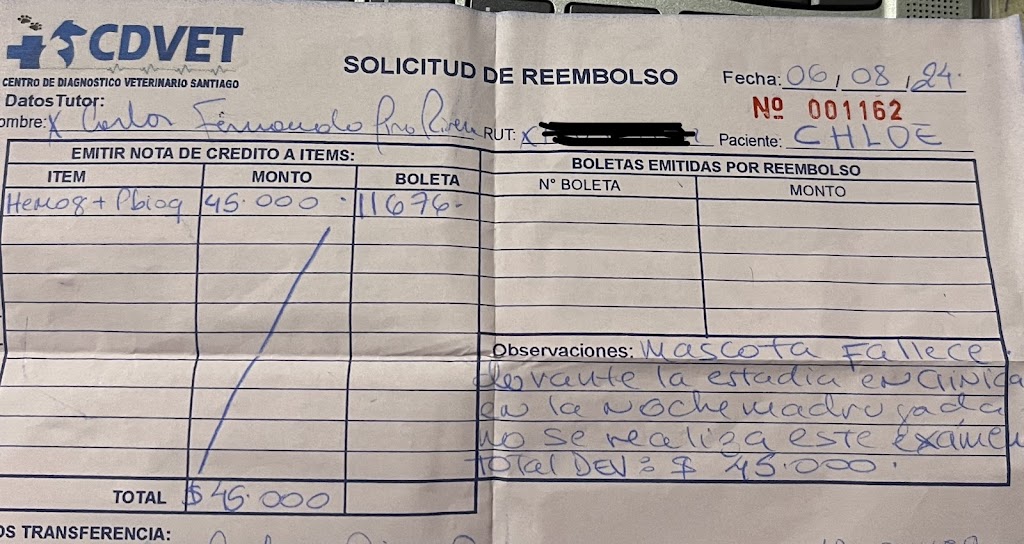 CDVET
CENTRO DE DIAGNOSTICO VETERINARIO SANTIAGO
SOLICITUD DE REEMBOLSO
Fecha: 06/08/24.
Nº 001162
Datos Tutor:
ombre: x Carlos Fernando Pino Rivera RUT: x Paciente: CHLOE
EMITIR NOTA DE CREDITO A ITEMS:
ITEM MONTO BOLETA
Hemog + Pbioq 45.000. 11676-
TOTAL $45.000
BOLETAS EMITIDAS POR REEMBOLSO
Nº BOLETA MONTO
Observaciones: Mascota Fallece.
durante la estadia en Clinica
en la noche madrugada
no se realiza este exámen
total DEV: $ 45.000.
OS TRANSFERENCIA: